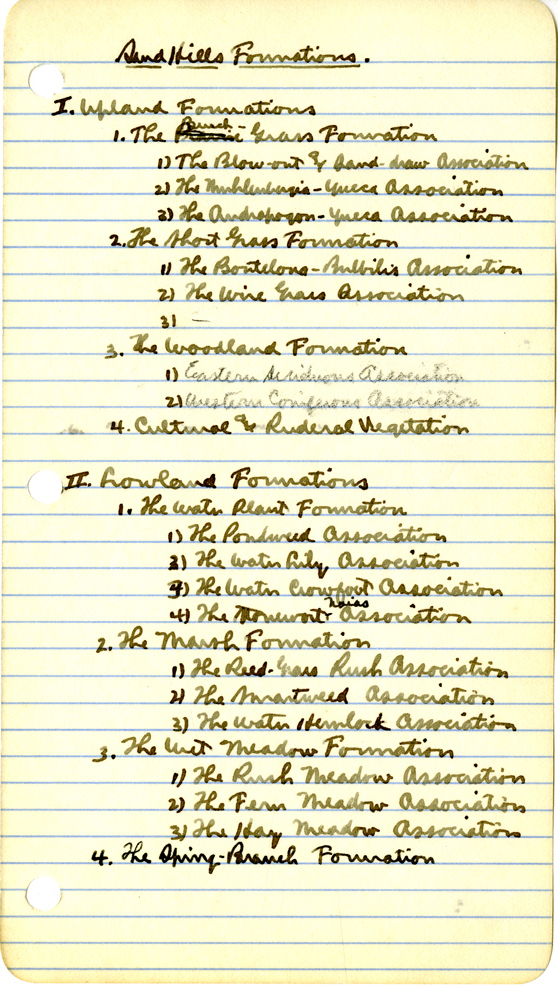 Sand Hills Formations.
I. Upland Formations
1. The Bunch- Grass Formation
1) The Blow-out & Sand-draw Association
2) The Muhlenbergia-Yucca Association
3) The Andropogon-Yucca Association
2. The Short Grass Formation
1) The Bouteloua-Bulbilis Association
2) The Wire Grass Association
3) —
3. The Woodland Formation
1) Eastern Deciduous Association
2) Western Coniferous Association
4. Cultural & Ruderal Vegetation
II. Lowland Formations
1. The Water Plant Formation
1) The Pondweed Association
2) The Water Lily Association
3) The Water Crowfoot Association
4) The Stonewort-Naias Association
2. The Marsh Formation
1) The Reed-Grass Rush Association
2) The Smartweed Association
3) The Water Hemlock Association
3. The Wet Meadow Formation
1) The Rush Meadow Association
2) The Fern Meadow Association
3) The Hay Meadow Association
4. The Spring-Branch Formation